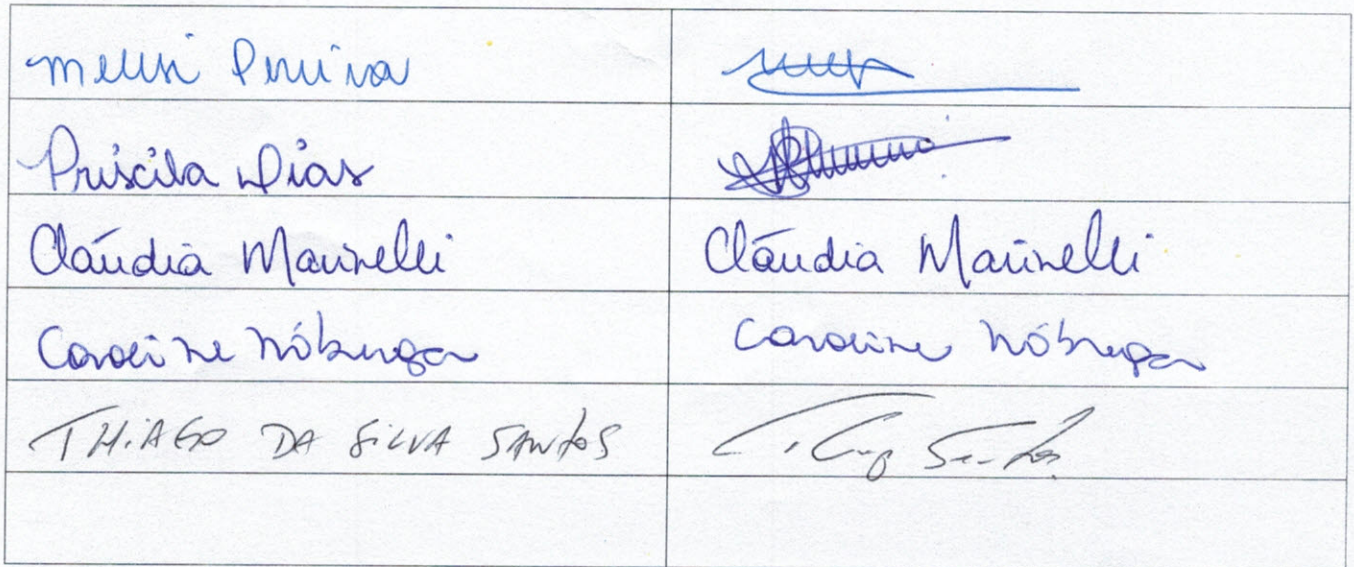 Pereira
Priscila Dias
Cláudia Marinelli Cláudia Marinelli
Caroline Nóbrega Caroline Nóbrega
THIAGO DA SILVA SANTOS Santos